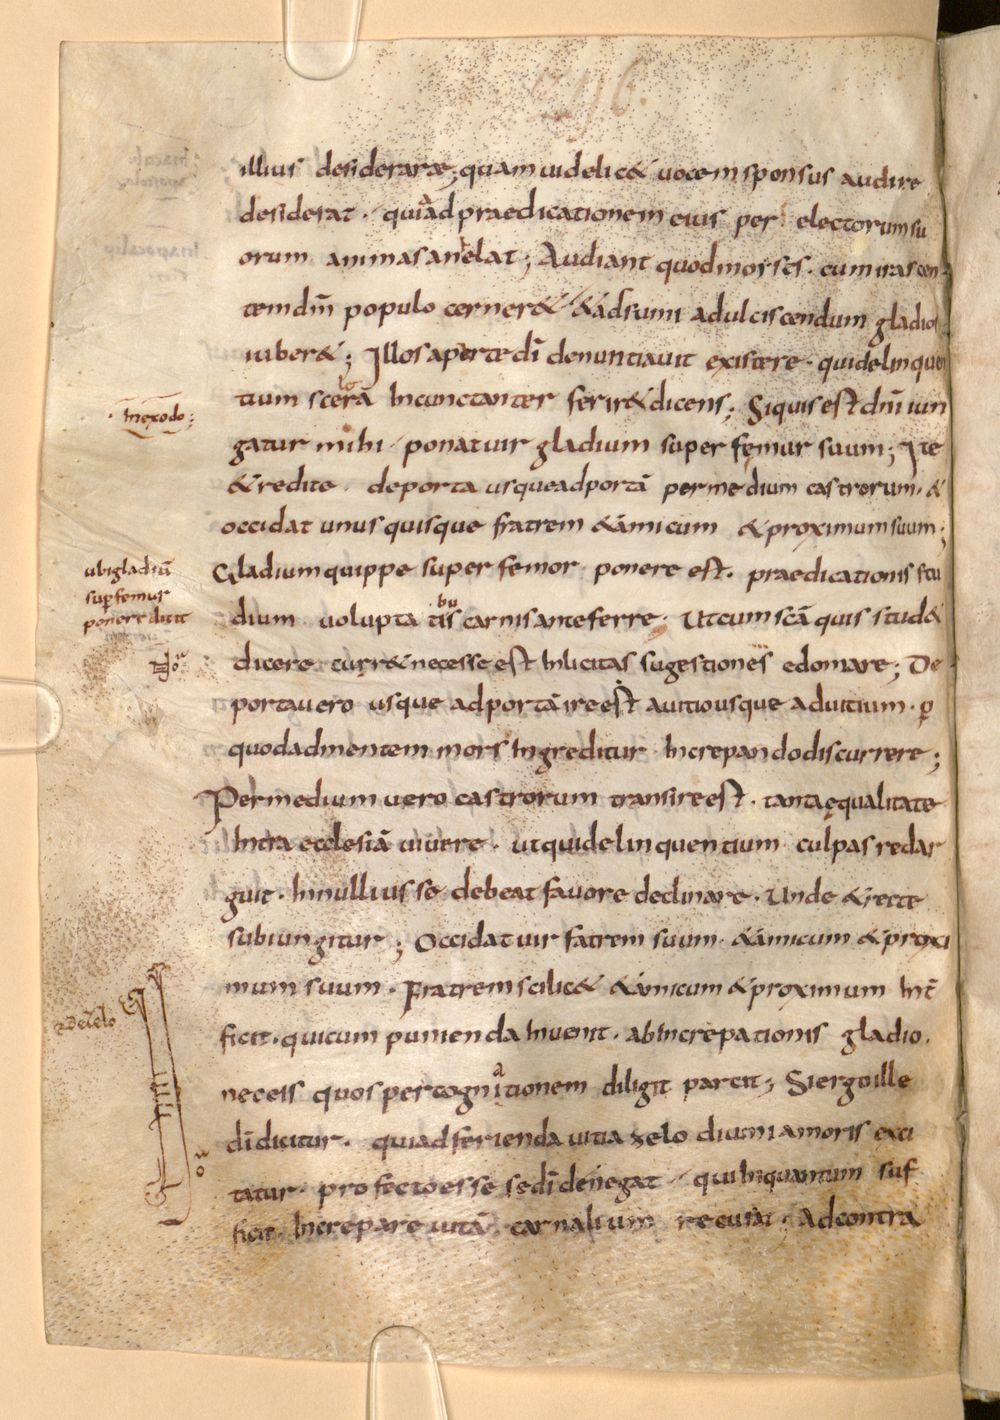 illius desiderare; quam uidelic& uocem sponsus audire
desiderat. quia ad praedicationem eius per electorum su
orum animas anhelat; Audiant quod moyses. cum irascen
tem dm̄ populo cerner& & adsumi ad ulciscendum gladios
iuber&; Illos aperte dī denuntiauit existere. qui delinquen
tium scelera Incunctanter ferir& dicens; Siquis est dn̄i iun
gatur mihi ponat uir gladium super femur suum; Ite
& redite. de porta usque ad portā per medium castrorum. &
occidat unusquisque fratrem & amicum & proximum suum;
Gladium quippe super femor ponere est. praedicationis stu
dium uoluptatibus carnis anteferre. Ut cum scā quis stud&
dicere cur& necesse est Inlicitas sugestiones edomare; De
porta uero usque ad portā ire est a uitio usque ad uitium. p
quod ad mentem mors Ingreditur Increpando discurrere;
Per medium uero castrorum transire est. tanta ęqualitate
Intra ecclesiā uiuere. ut qui delinquentium culpas redar
guit. In nullius se debeat fauore declinare. Unde & recte
subiungitur; Occidat uir fatrem suum. & amicum & proxi
mum suum. Fratrem scilic& & amicum & proximum Int̄
ficit. qui cum punienda Inuenit. ab Increpationis gladio.
neceis quos per cognationem diligit parcit; Si ergo ille
dī dicitur. qui ad ferienda uitia zelo diuini amoris exci
tatur. profecto esse se dī denegat qui Inquantum suf
ficit. Increpare uitā carnalium recusat; Ad contra
· In exodo;
ubi gladiū
sup femur
ponere dicit
De zelo